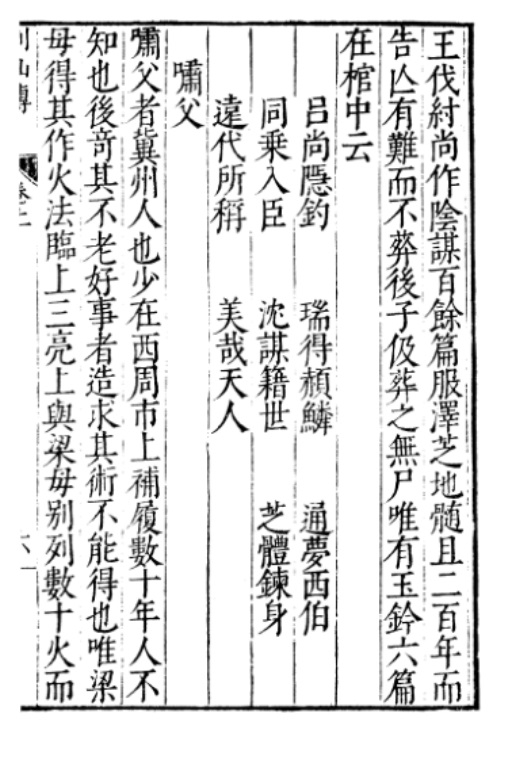 王伐紂尚作陰謀百餘篇服澤芝地髓且二百年而
告亾有難而不葬後子伋葬之無尸唯有玉鈐六篇
在棺中云
呂尚隱釣 瑞得赬鱗 通夢西伯
同乗入臣 沈謀籍世 芝體鍊身
遠代所稱 美哉天人
嘯父
嘯父者冀州人也少在西周市上補履數十年人不
知也後竒其不老好事者造求其術不能得也唯梁
母得其作火法臨上三亮上與梁母别列數十火而
列仙傳 卷上